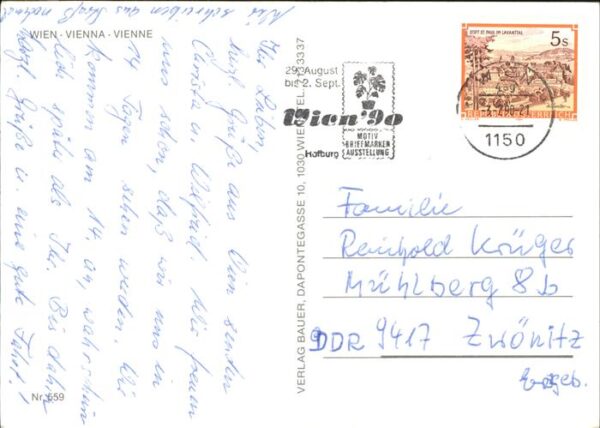 Wir schreiben aus Graß nochmal
WIEN - VIENNA - VIENNE
Ihr Lieben
Herzl. Grüße aus Wien senden
Christa, Wilfried. Wir freuen
uns schon, daß wir uns in
14 Tagen sehen werden. Wir
kommen am 14. an, wahrschein
lich später als Ihr. Bis dahin
herzl. Grüße u. eine gute Fahrt!
Nr. 559
VERLAG BAUER, DAPONTEGASSE 10, 1030 WIEN, TEL. 7333337
29. August
bis 2. Sept.
Wien '90
Hofburg
MOTIV
BRIEFMARKEN
AUSSTELLUNG
STIFT ST. PAUL IM LAVANTTAL
5s
REPUBLIK ÖSTERREICH
1150
Familie
Reinhold Krüger
Mühlberg 8b
DDR 9417 Zwönitz
Erzgeb.